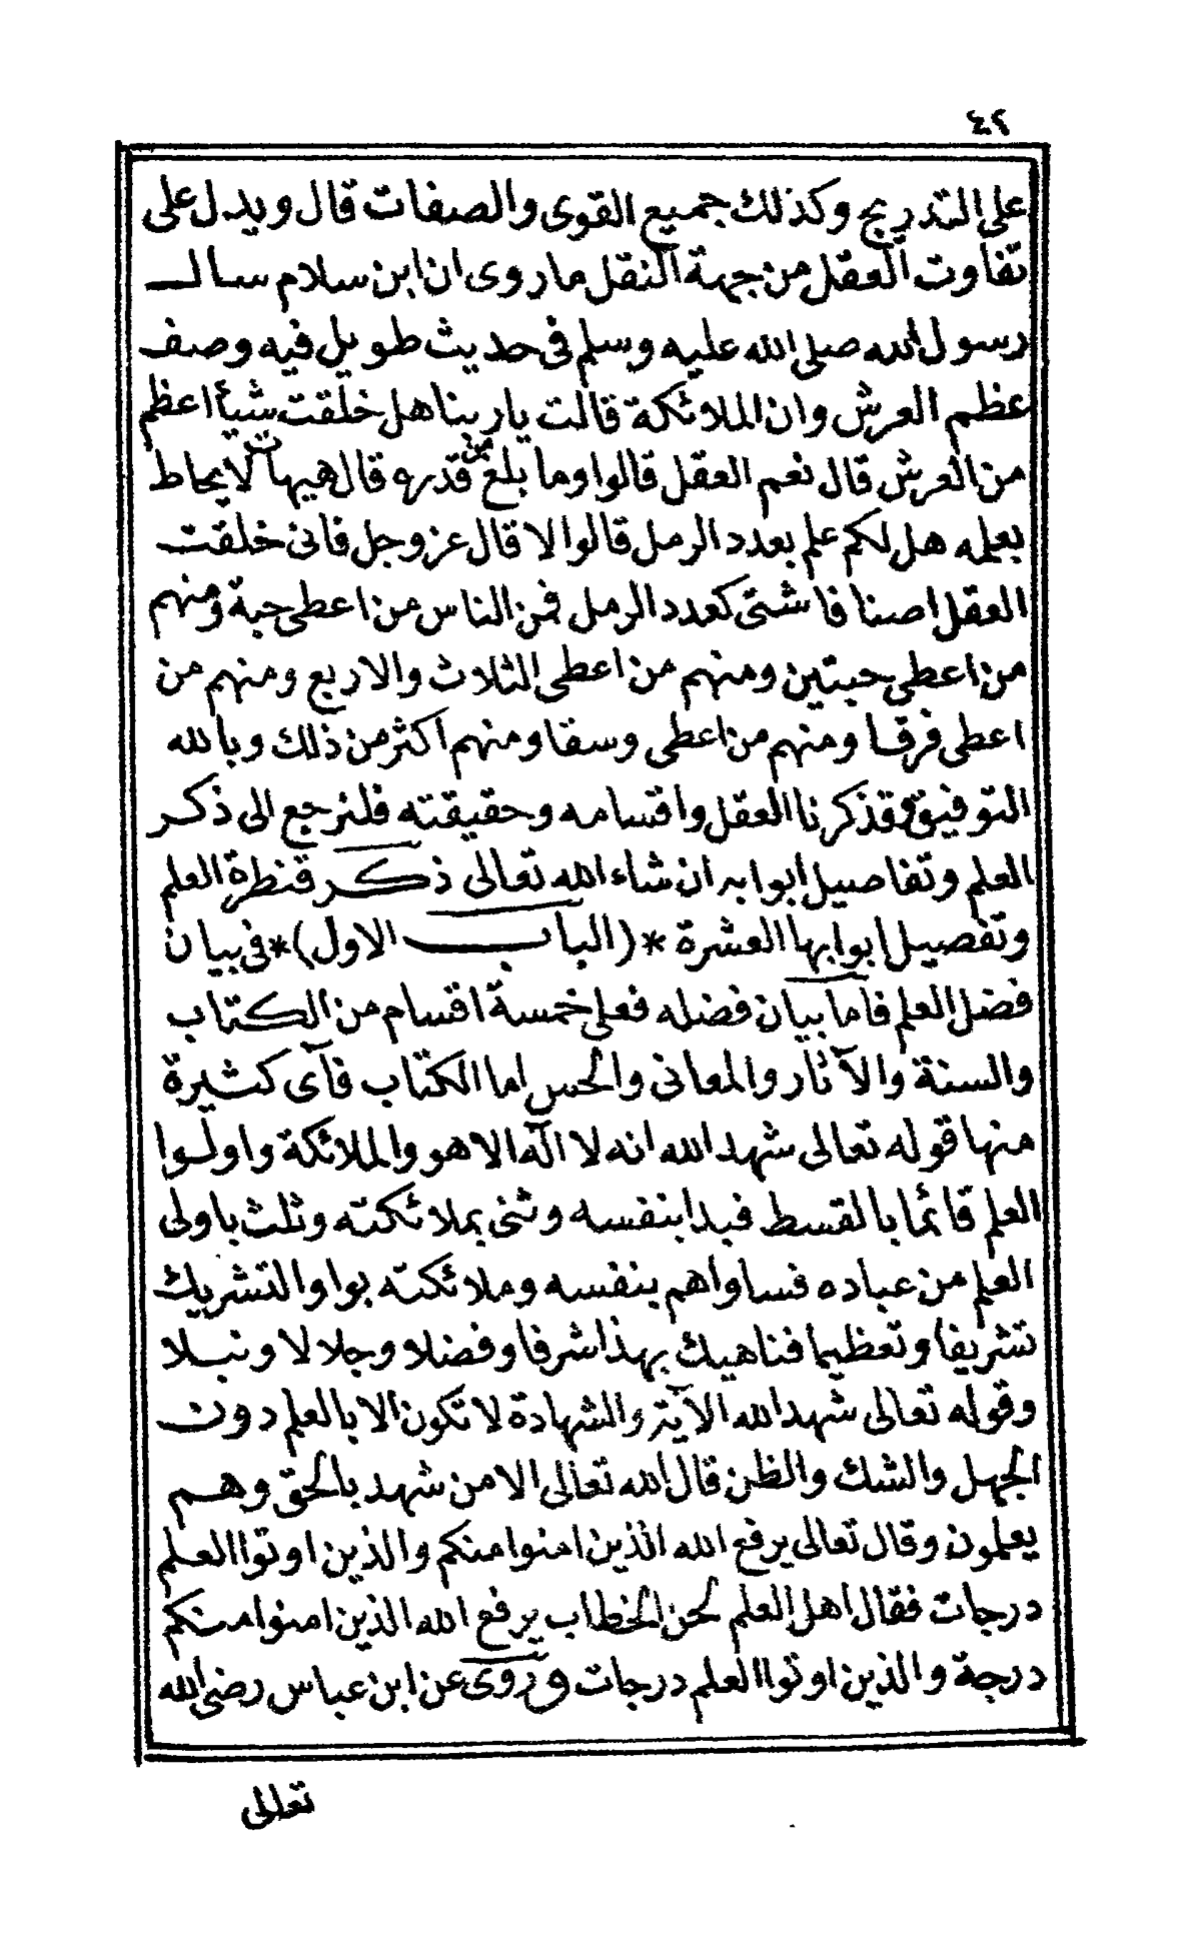 ٤٢
على التدريج وكذلك جميع القوى والصفات قال ويدل على
تفاوت العقل من جهة النقل ما روى ان ابن سلام سال
رسول الله صلى الله عليه وسلم فى حديث طويل فيه وصف
عظم العرش وان الملائكة قالت يا ربنا هل خلقت شيأ اعظم
من العرش قال نعم العقل قالوا وما بلغ من قدره قال هيهات لا يحاط
بعلمه هل لكم علم بعدد الرمل قالوا لا قال عز وجل فانى خلقت
العقل اصنافا شتى كعدد الرمل فمن الناس من اعطى حبة ومنهم
من اعطى حبتين ومنهم من اعطى الثلاث والاربع ومنهم من
اعطى فرقا ومنهم من اعطى وسقا ومنهم اكثر من ذلك وبالله
التوفيق وقد ذكرنا العقل واقسامه وحقيقته فلنرجع الى ذكر
العلم وتفاصيل ابوابه ان شاء الله تعالى ذكر قنطرة العلم
وتفصيل ابوابها العشرة *(الباب الاول)* فى بيان
فضل العلم فاما بيان فضله فعلى خمسة اقسام من الكتاب
والسنة والآثار والمعانى والحس اما الكتاب فآى كثيرة
منها قوله تعالى شهد الله انه لا اله الا هو والملائكة واولوا
العلم قائما بالقسط فبدا بنفسه وثنى بملائكته وثلث باولى
العلم من عباده فساواهم بنفسه وملائكته بواو التشريك
تشريفا وتعظيما فناهيك بهذا شرفا وفضلا وجلالا ونبلا
وقوله تعالى شهد الله الآية والشهادة لا تكون الا بالعلم دون
الجهل والشك والظن قال الله تعالى الا من شهد بالحق وهم
يعلمون وقال تعالى يرفع الله الذين امنوا منكم والذين اوتوا العلم
درجات فقال اهل العلم لحن الخطاب يرفع الله الذين امنوا منكم
درجة والذين اوتوا العلم درجات وروى عن ابن عباس رضى الله
تعالى